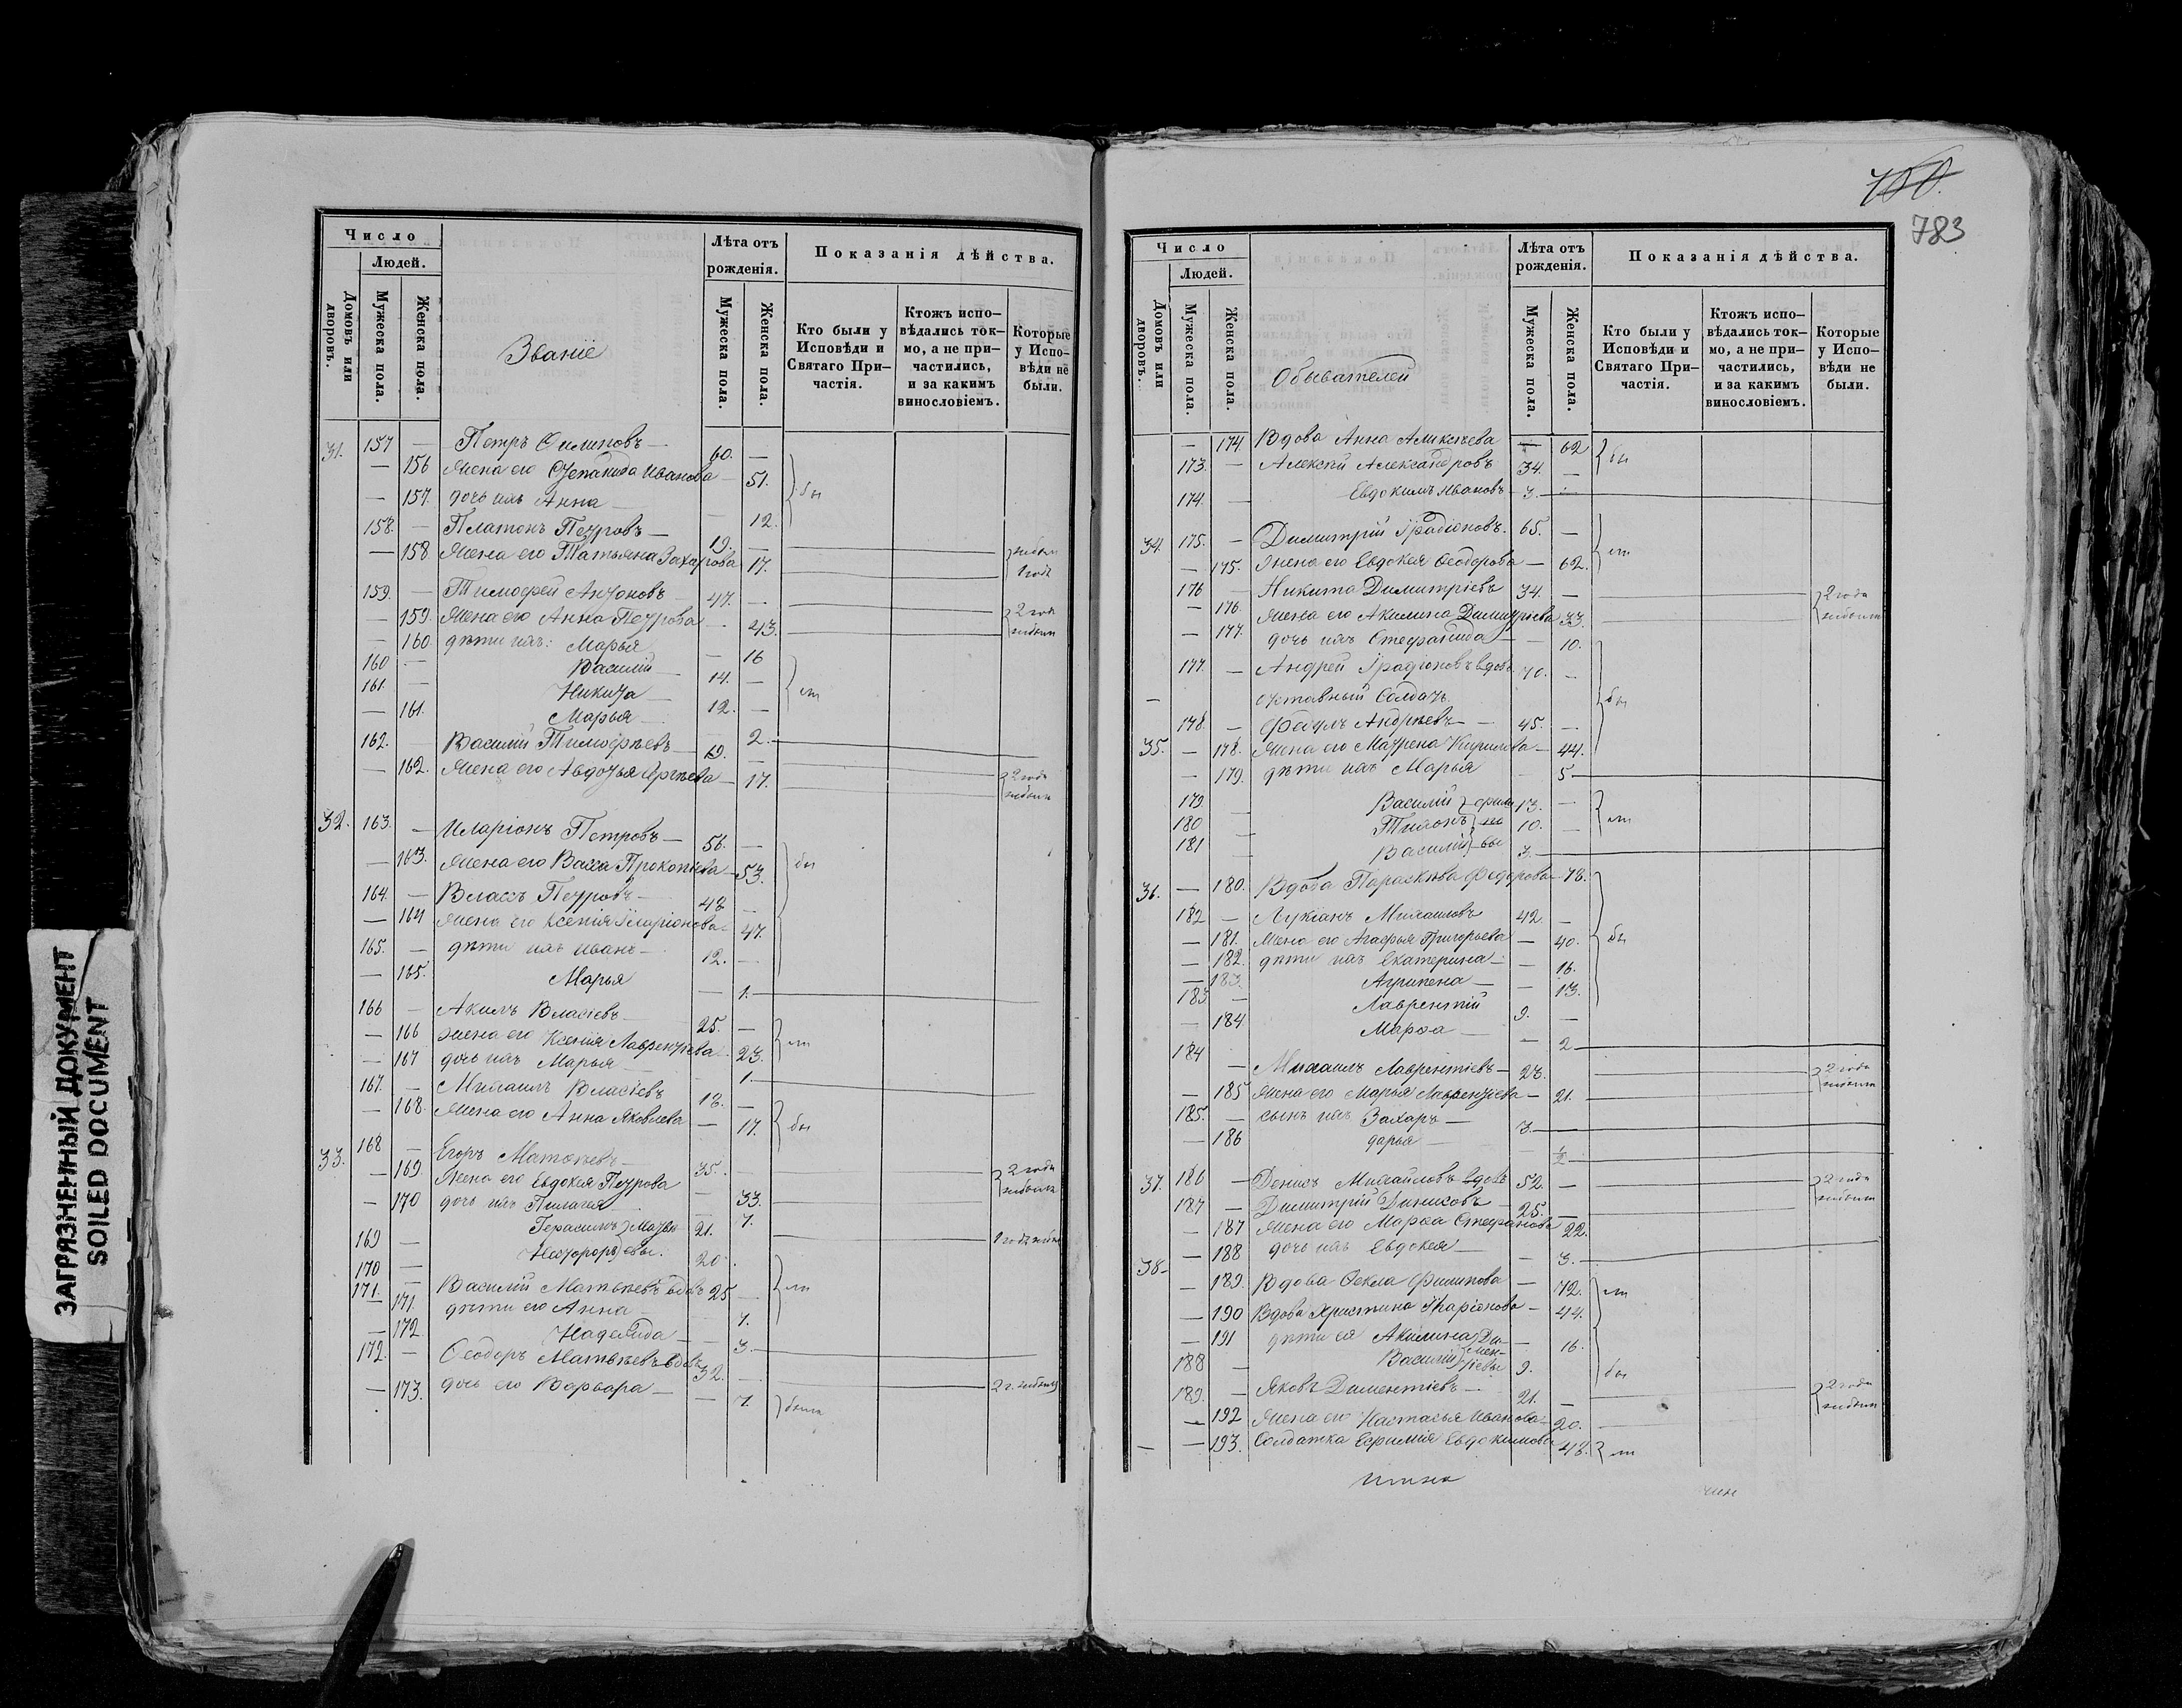 ЗАГРЯЗНЕННЫЙ ДОКУМЕНТ
SOILED DOCUMENT
Число
Людей.
Домовъ или дворовъ.
Мужеска пола.
Женска пола.
Званіе
Лѣта отъ рожденія.
Мужеска пола.
Женска пола.
Показанія дѣйства.
Кто были у Исповѣди и Святаго Причастія.
Ктожъ исповѣдались токмо, а не причастились, и за какимъ винословіемъ.
Которые у Исповѣди не были.
31. 157 — Петръ — 60. —
— 156 жена его Степанида Иванова — 51.
— 157. дочь ихъ Анна — 12.
158. — Платонъ Петровъ — 19. —
— 158 жена его Татьяна Захарова 17.
159. — Тимофей Антоновъ — 47. —
— 159. жена его Анна Петрова — 43.
— 160. дѣти ихъ: Марья — 16
160 — Василій 14. —
161. — Никита 12. —
— 161. Марья — 2.
162. Василій Тимофѣевъ 19. —
— 162. жена его Авдотья — 17.
32. 163. — Иларіонъ Петровъ — 56. —
— 163. жена его Васса Прокопіева — 53.
164. — Власъ Петровъ — 48 —
— 164 жена его Ксенія Иларіонова — 47.
165. — дѣти ихъ Иванъ — 12. —
— 165. Марья — 1.
166 — Акимъ Власіевъ 25. —
— 166 жена его Ксенія Лаврентіева — 23.
— 167 дочь ихъ Марья — 1.
167. — Михаилъ Власіевъ 18. —
— 168. жена его Анна Яковлева — 17.
33. 168 — Егоръ Матвѣевъ — 35. —
— 169. жена его Евдокея Петрова — 33.
— 170 дочь ихъ Пилагея — 7.
169 — Герасимъ 21.
170 — 20.
171. — Василій Матвѣевъ вдовъ 25 —
— 171. дѣти его Анна — 7.
— 172 Надежда — 3.
172. — Ѳеодоръ Матвѣевъ вдовъ 32. —
— 173. дочь его Варвара — 7.
700.
783
Число
Людей.
Домовъ или дворовъ.
Мужеска пола.
Женска пола.
Обывателей
Лѣта отъ рожденія.
Мужеска пола.
Женска пола.
Показанія дѣйства.
Кто были у Исповѣди и Святаго Причастія.
Ктожъ исповѣдались токмо, а не причастились, и за какимъ винословіемъ.
Которые у Исповѣди не были.
— 174. Вдова Анна Аликсѣева — 62
173. — Алексѣй Александровъ 34. —
174. — Евдокимъ Ивановъ 3. —
34. 175. — Димитрій Ірадіоновъ. 65. —
— 175. жена его Евдокея Ѳеодорова — 62.
176 — Никита Димитріевъ 34. —
— 176. жена его Акилина Димитріева 33.
— 177. дочь ихъ Стефанида — 10.
177. — Андрей Ірадіоновъ вдовъ 70. —
— Солдатъ
178. — Андрѣевъ — 45. —
35. — 178. жена его Матрена Кирилова — 44.
— 179. дѣти ихъ Марья — 5
179 — Василій 13. —
180 — Тихонъ 10. —
181 — Василій 3.
36. — 180. Вдова Параскѣва Федорова 78.
182 — Лукіанъ Михаиловъ 42. —
— 181. жена его Агафья Григорьева — 40.
— 182. дѣти ихъ Екатерина — 16.
— 183. Агрипена — 13.
183. — Лаврентій 9. —
— 184 Марѳа — 2
184 — Михаилъ Лаврентіевъ — 23.
— 185 жена его Марья Лаврентіева — 21.
185. — сынъ ихъ Захаръ — 3.
— 186 дарья — 1/2
37. 186 — Денисъ Михайловъ вдовъ 52. —
187 — Димитрій Динисовъ 25. —
— 187 жена его Марѳа Стефанова 22.
— 188 дочь ихъ Евдокея — 3.
38 — 189. Вдова Ѳекла Филипова — 72.
— 190 Вдова Христина Іларіонова — 44.
— 191 дѣти ея Акилина — 16.
188 — Василій 9.
189. — Яковъ Диментіевъ — 21. —
— 192 жена его Настасья Иванова — 20.
— — 193. Солдатка Евфимія Евдокимова 48.